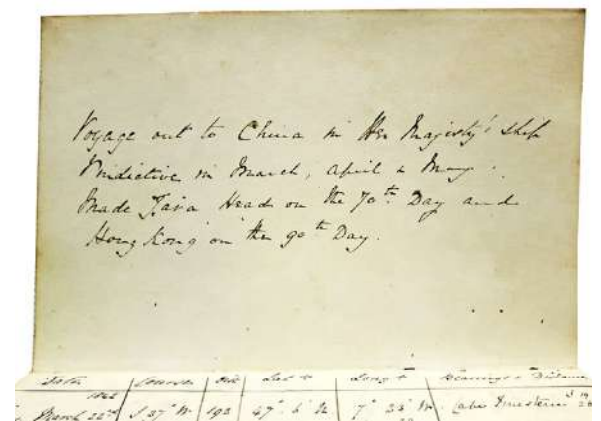 Voyage out to China in Her Majesty's Ship
Vindictive in March, April & May.
Made Java Head on the 70th Day and
Hong Kong on the 90th Day.
Date Course Dist Lat Long Bearings & Distance
1842
March 22nd S 37° W 193 47° 6' N 7° 33' W Cape Finesterre S 19